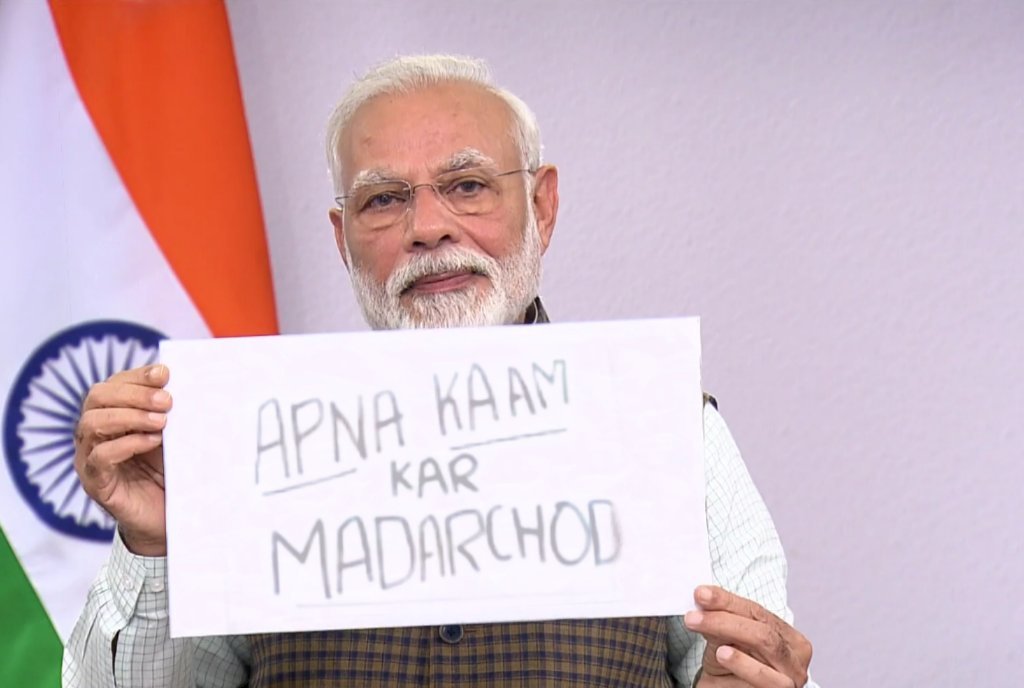 APNA KAAM
KAR
MADARCHOD